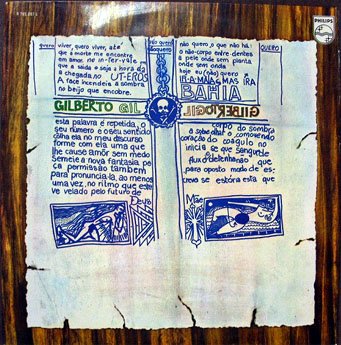 PHILIPS
quero
viver, quero viver, até
que a morte me encontre
em amor.
que a saída e seja a hora da
a chegada no UT-EROS
A face incendeia a sombra
no beijo que encobre.
não quero
não quero, o que não há:
o não-corpo entre dentes
e pelo onde sem planta
onde sem onda
hoje eu (não) quero
IR A MAIS, MAS IRA
BAHIA
QUERO
GILBERTO GIL
GILBERTO GIL
esta palavra é repetida, o
seu número e o seu sentido
olha ela no meu discurso
forme com ela uma que
lhe cause amor sem medo
Semeie a nova fantasia pe
ça permissão também
para pronunciá-la, ao menos
uma vez, no ritmo que este
ve velado pelo futuro de
Deus
corpo da sombra
coração do coágulo no
inicia se que sangue de
fluxo
para oposto modo de es
crevo se estória esta que
Mão